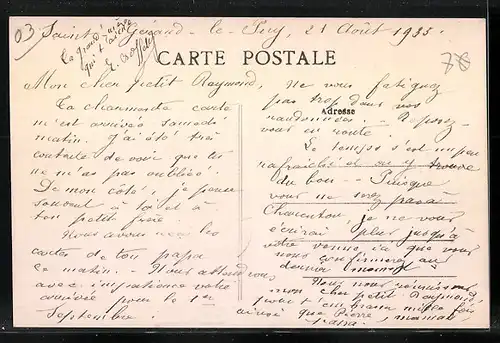 03 Saint Gérand-le-Puy, 21 Août 1935.
78
La grand'mère
qui t'aime
E.
CARTE POSTALE
Adresse
Mon cher petit Raymond,
Ta charmante carte
m'est arrivée samedi
matin. J'ai été très
contente de voir que tu
ne m'as pas oubliée.
De mon côté, je pense
souvent à toi et à
ton petit frère.
Nous avons reçu les
cartes de ton papa
ce matin. - Nous attendons
avec impatience votre
arrivée pour le 1er
Septembre.
Ne vous fatiguez
pas trop dans vos
randonnées. - Reposez-
vous en route.
Le temps s'est un peu
rafraîchi et on y trouve
du bon - Puisque
vous ne serez pas à
Charenton, je ne vous
écrirai plus jusqu'à
votre venue ici que vous
nous confirmerez au
dernier moment
Nous nous réunissons,
mon cher petit Raymond,
pour t'embrasser mille fois
ainsi que Pierre, maman,
papa.